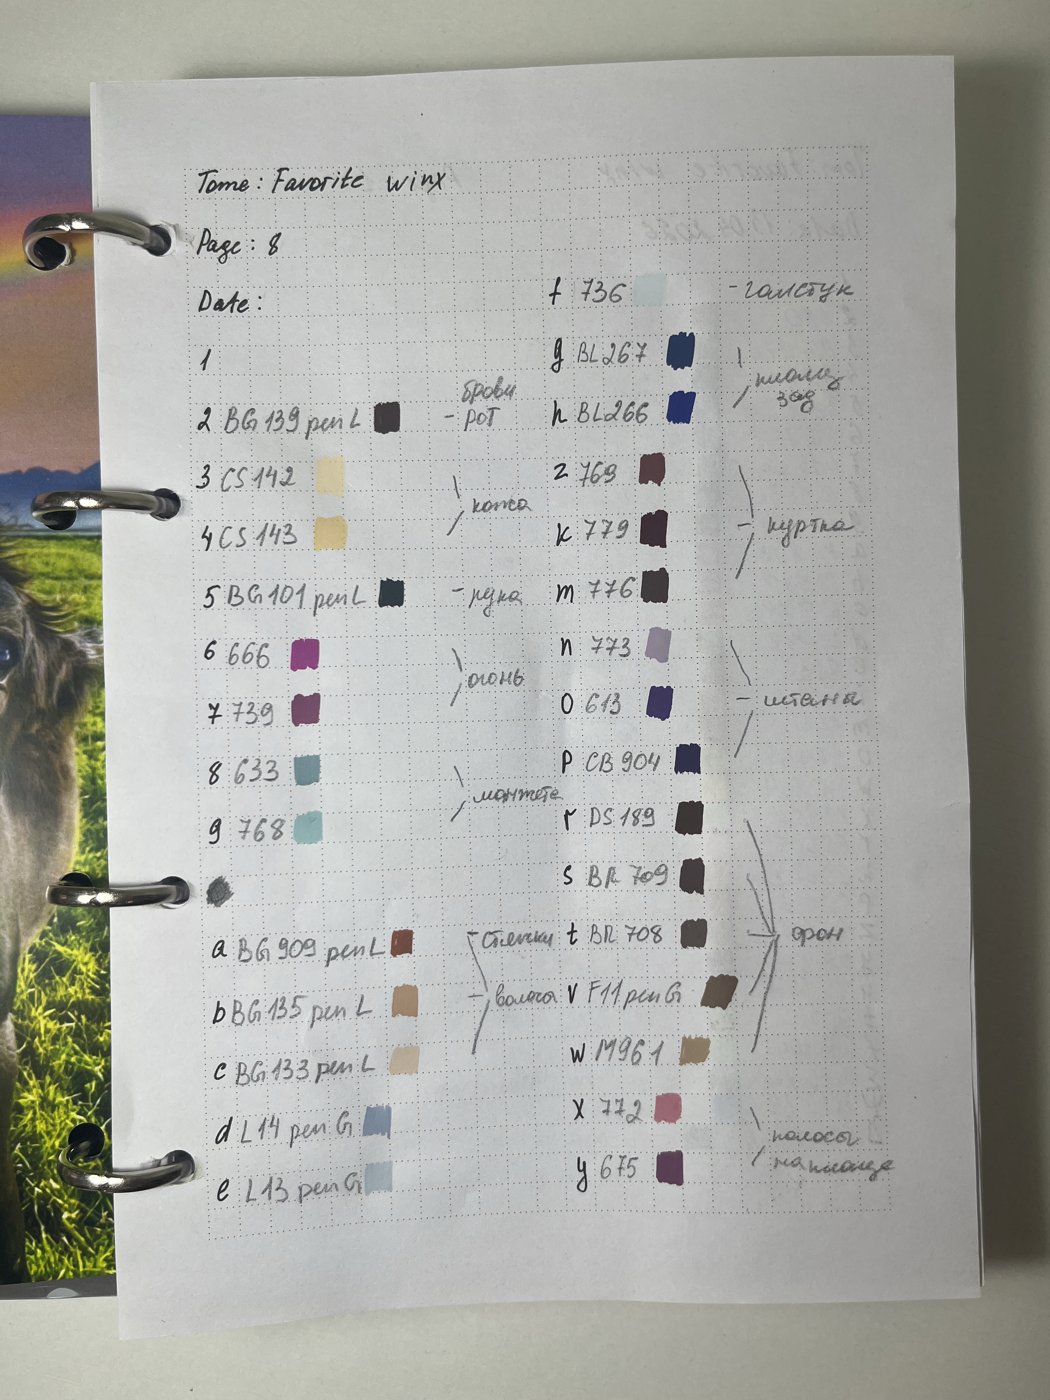 Tome: Favorite winx
Page: 8
Date:
1
2 BG 139 pen L - брови рот
3 CS 142
4 CS 143
кожа
5 BG 101 pen L - рука
6 666
7 739
огонь
8 633
9 768
манжета
a BG 909 pen L
b BG 135 pen L
волосы
c BG 133 pen L
d L14 pen G
e L13 pen G
f 736 - галстук
g BL267
h BL266
зад
z 769
k 779
куртка
m 776
n 773
o 613
штаны
p CB 904
r DS 189
s BR 709
t BR 708
фон
v F11 pen G
w M961
x 772
y 675
полосы